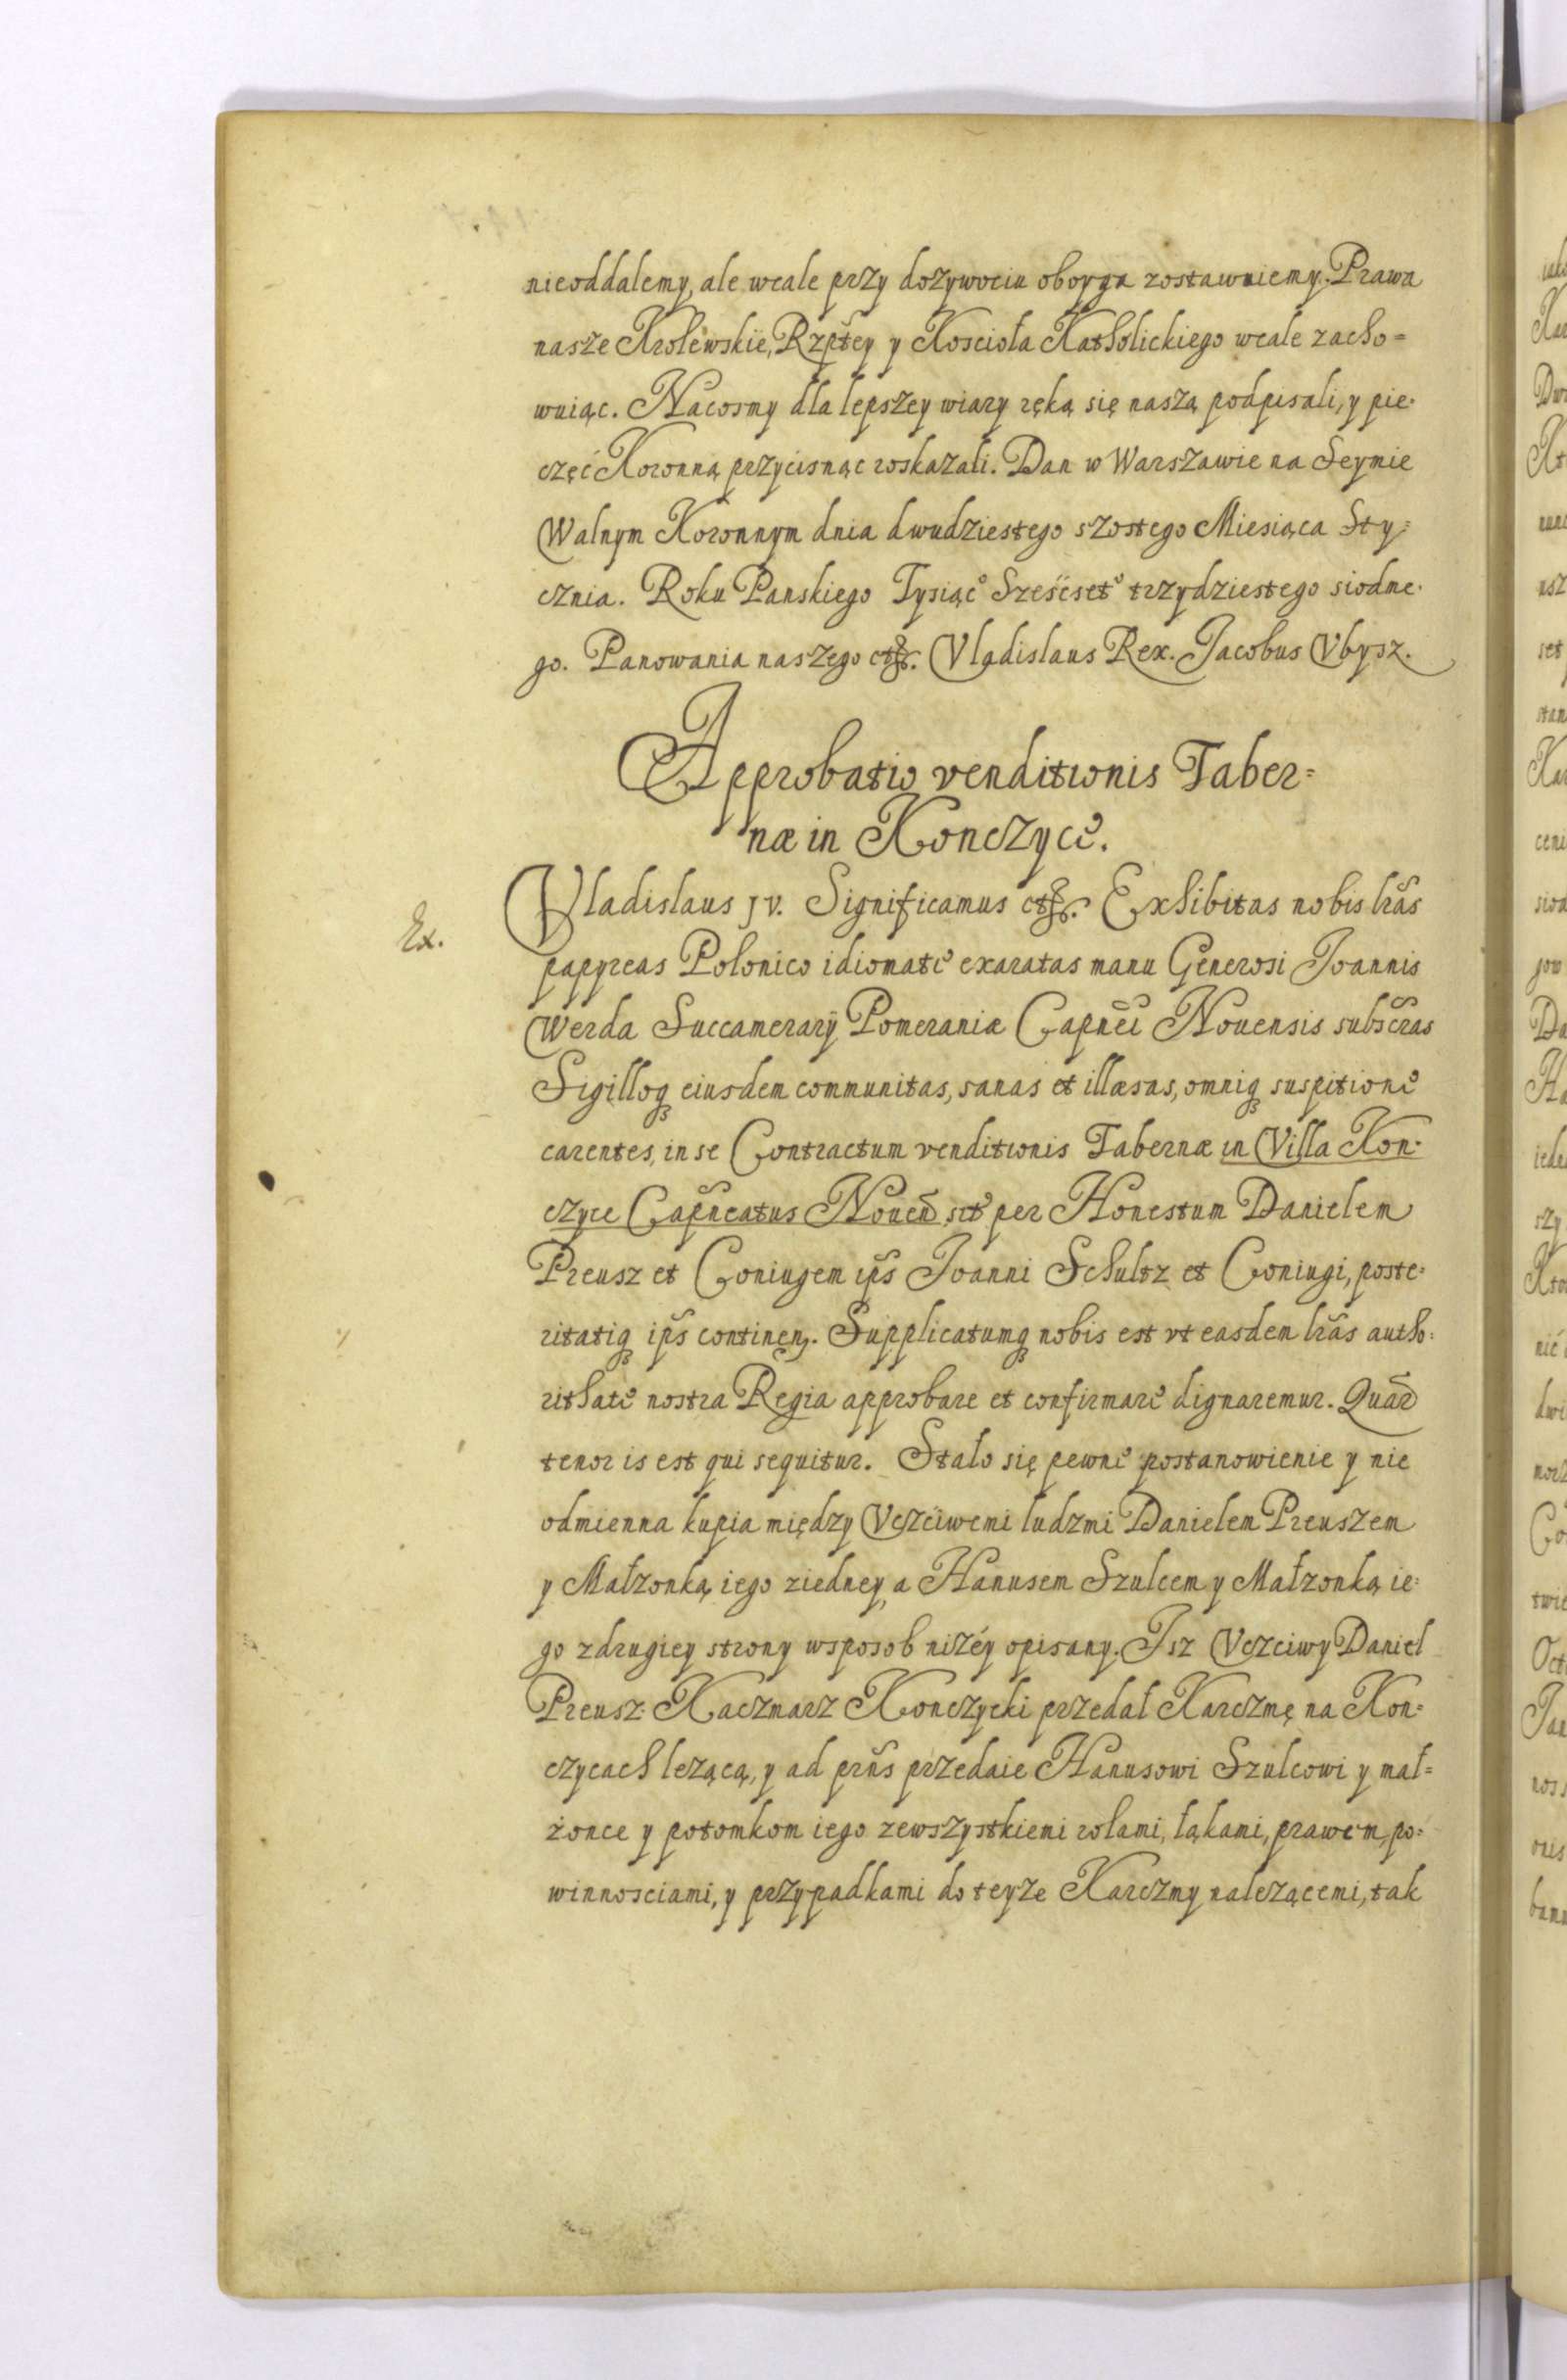 nieoddalemy, ale wcale przy dozywociu oboyga zostawuiemy. Prawa
nasze Krolewskie, Rzptey y Koscioła Katholickiego wcale zacho=
wuiąc. Nacosmy dla lepszey wiary ręką się naszą podpisali, y pie-
częć Koronną przycisnąc roskazali. Dan w Warszawie na Seymie
Walnym Koronnym dnia dwudziestego szostego Miesiąca Sty=
cznia. Roku Panskiego Tysiąc Sześcset trzydziestego siodme-
go. Panowania naszego etc. Vladislaus Rex. Jacobus Vbysz.
Approbatio venditionis Taber=
næ in Konczyce.
Ex.
Vladislaus IV. Significamus etc. Exhibitas nobis lras
papyreas Polonico idiomate exaratas manu Generosi Joannis
Werda Succamerarÿ Pomeraniæ Capnei Nouensis subscras
Sigilloq eiusdem communitas, sanas et illæsas, omniq suspitione
carentes, in se Contractum venditionis Tabernæ in Villa Kon-
czyce Capneatus Nouen set per Honestum Danielem
Preusz et Coniugem ips Joanni Schultz et Coniugi, poste-
ritatiq ips continen. Supplicatumq nobis est vt easdem lras autho=
rithate nostra Regia approbare et confirmare dignaremur. Quar
tenor is est qui sequitur. Stało się pewne postanowienie y nie
odmienna kupia między Vczciwemi ludzmi Danielem Preuszem
y Małzonką iego ziedney, a Hanusem Szulcem y Małzonką ie-
go zdrugiey strony wsposob niźéy opisany. Isz Vczciwy Daniel
Preusz Kaczmarz Konczycki przedał Karczmę na Kon-
czycach lezącą, y ad prns przedaie Hanusowi Szulcowi y mał=
żonce y potomkom iego zewszystkiemi rolami, łąkami, prawem, po-
winnosciami, y przypadkami do teyze Karczmy nalezącemi, tak